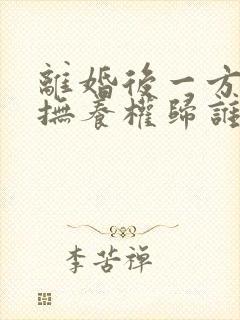 離婚後一方
撫養權歸誰
李苦禪